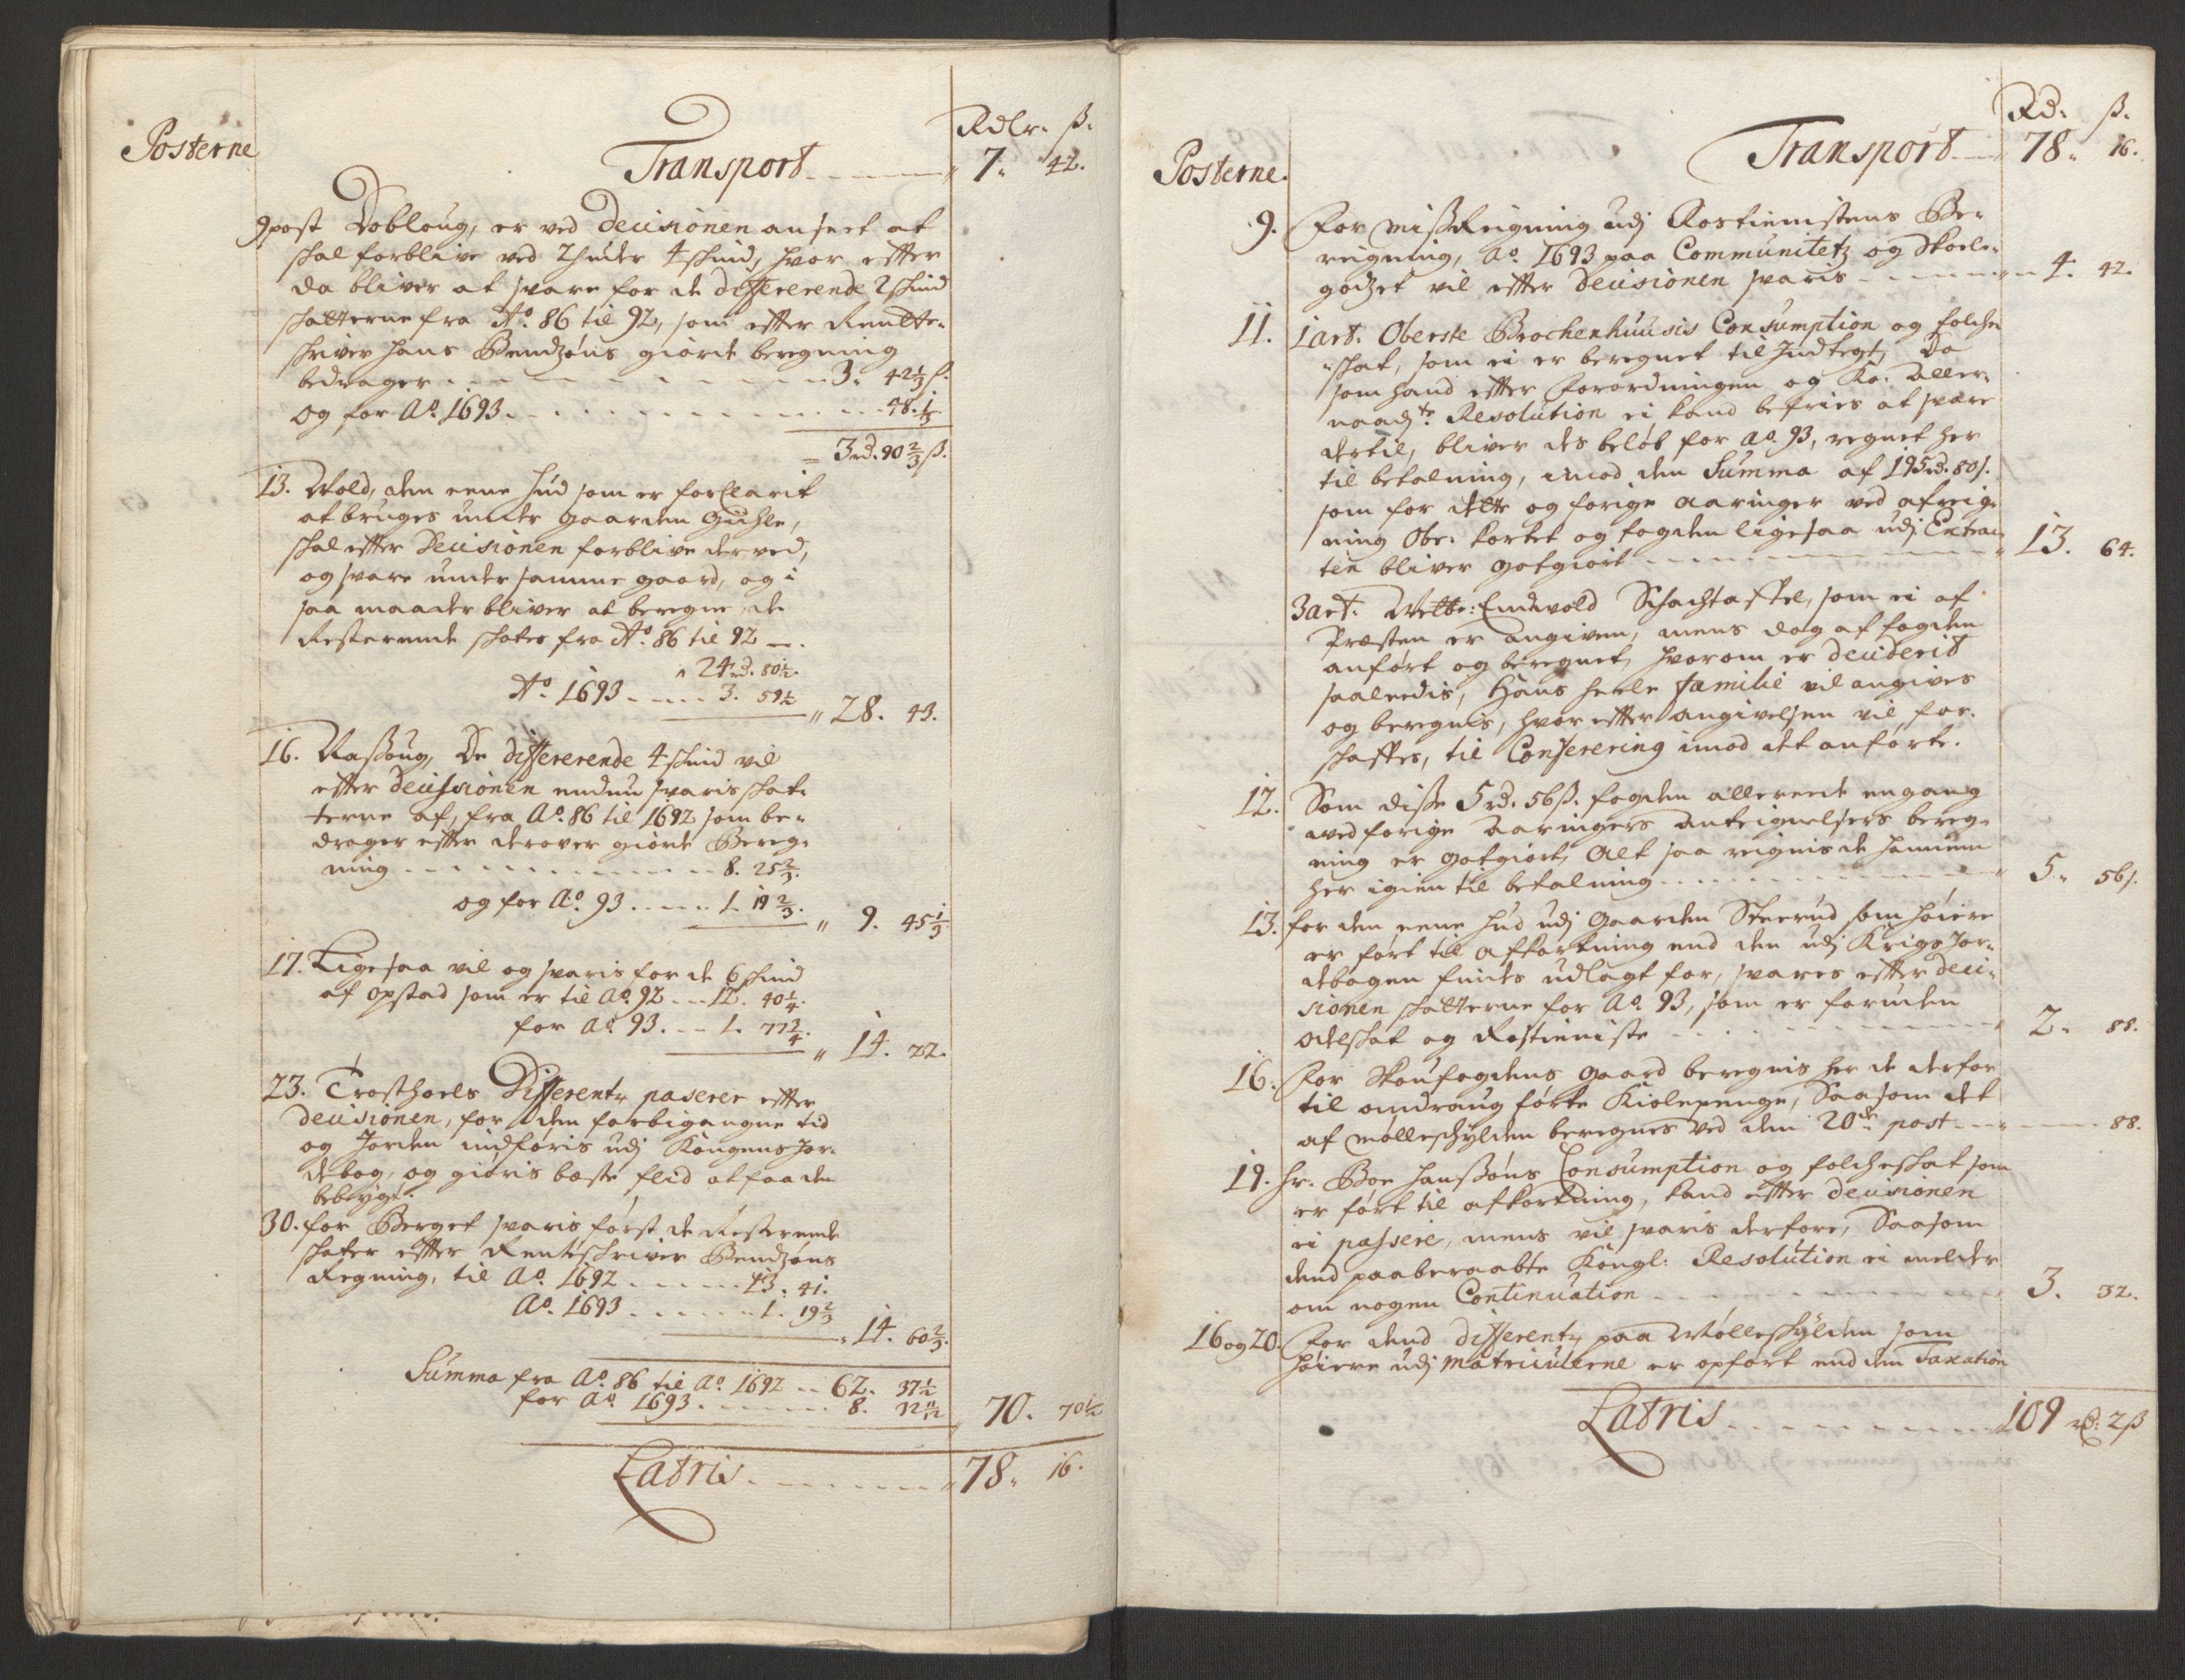 Rdlr. ß.
Posterne
Transport 7. 42.
9 post Dobloug, er ved Decisionen anseet at
skal forblive ved 2 huder 4 skind, hvor efter
da bliver at svare for de differerende 2 skind
skatterne fra Ao. 86 til 92, som efter Rente-
skriver Hans Bendzøns giorde beregning
bedrager 3. 42 1/3 ß.
og for Ao. 1693. 48. 1/3
3 rd. 90 2/3 ß.
13. Wold, den eene hud som er forclarit
at bruges under gaarden Guhle,
skal efter Decisionen forblive derved,
og svare under samme gaard, og i
saa maader bliver at beregne, de
Resterende skater fra Ao. 86 til 92
24 rd. 80 1/2.
Ao. 1693 3. 59 1/2
28. 43.
16. Nashoug, De differerende 4 skind vil
efter Decisionen endnu svaris skat-
terne af, fra Ao. 86 til 1692 som be-
drager efter derover giorde Bereg-
ning 8. 25 2/3.
og for Ao. 93 1. 19 2/3.
9. 45 1/3
17. Ligesaa vil og svaris for de 6 skind
af opstad som er til Ao. 92 12. 40 1/4.
for Ao. 93. 1. 77 3/4.
14. 22.
23. Trosthoels Differentz paserer efter
Decisionen, for den forbigangne tid
og Jorden indføris udj Kongens Jor-
debog, og giøris beste flid at faa den
bebygt.
30. for Berget svaris først de Resterende
skater efter Renteskriver Bendzøns
Regning, til Ao. 1692 13. 41.
Ao. 1693 1. 19 2/3
14. 60 2/3.
Summa fra Ao. 86 til Ao. 1692 62. 37 1/2
for Ao. 1693 8. 32 11/12
70. 70 1/2
Latris 78. 16.
Rd. ß.
Transport 78. 16.
Posterne.
9. For Misreigning udj Rostienistens Be-
reigning, Ao. 1693 paa Communitetz og Skole-
godzet vil efter Decisionen svaris 4. 42.
11. 1 art. Oberste Brochenhuusis Consumption og folche
skat, som ei er beregnet til Indtegt, Da
som hand efter Forordningen og Ko. Aller-
naadste Resolution ei kand befries at svare
dertil, bliver des beløb for Ao. 93, regnet her
til betalning, imod den Summa af 195 rd. 80 ß.
som for dette og forige aaringer ved afreig-
ning Obr. kortet og fogden ligesaa udj Extrac-
ten bliver gotgiort 13. 64.
3 art. Wette: Eindvold Schachtaftel, som ei af
Præsten er angiven, mens dog af fogden
anført og beregnet, hvorom er deciderit
saaledis, Hans heele familie vil angives
og beregnes, hvor efter angivelsen vil for-
skaffes, til Conferering imod det anførte.
12. Som disse 5 rd. 56 ß. fogden allereede engang
ved forige Aaringers Antegnelsers bereg-
ning er gotgiort, Alt saa reignis de hannem
her igien til betalning 5. 56 ß.
13. for den eene hud udj Gaarden Steerud som høiere
er ført til afkortning end den udj Krigs Jor-
debogen findes udlagt for, svares efter Deci-
sionen skatterne for Ao. 93, som er foruden
odelskat og Rostieniste 2. 88.
16. For Skoufogdens gaard beregnis her de derfor
til omdraug førte Kiolepenge, Saasom det
af mølleskylden beregnes ved den 20de post 88.
19. Hr. Boe Hanssøns Consumption og folcheskat som
er ført til afkortning, kand efter Decisionen
ei passere, mens vil svaris derfore, Saasom
dend paaberaabte Kongl: Resolution ei melder
om nogen Continuation 3. 32.
16 og 20. For dend Differentz paa Mølleskylden som
høiere udj Matriculerne er opført end den Taxation
Latris 109 rd: 2 ß